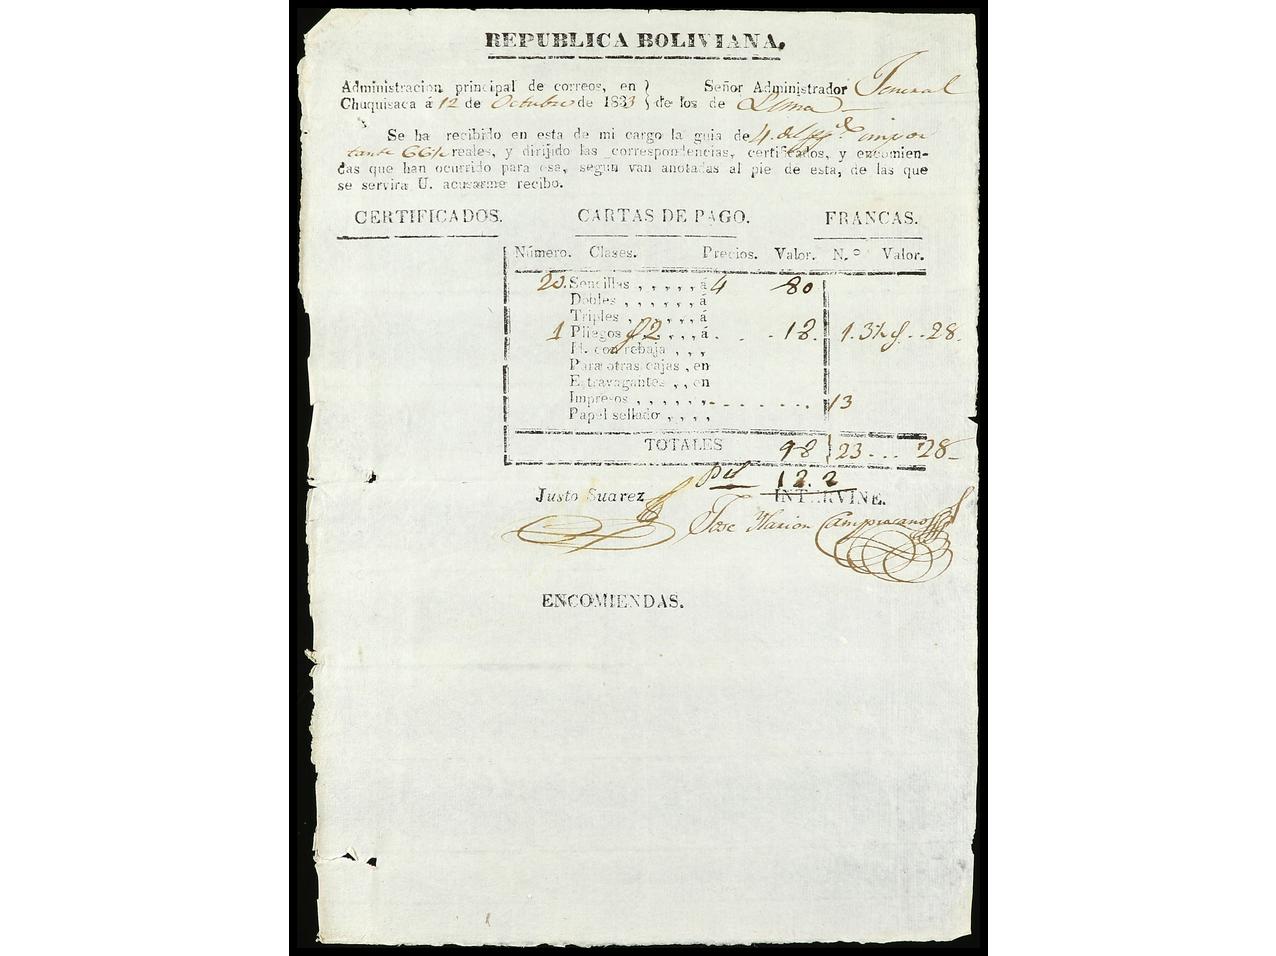 REPUBLICA BOLIVIANA.
Administracion principal de correos, en } Señor Administrador General
Chuquisaca á 12 de Octubre de 1833 } de los de Lima
Se ha recibido en esta de mi cargo la guia de 4. del impor
tante 66½ reales, y dirijido las correspondencias, certificados, y encomien-
das que han ocurrido para esa, segun van anotadas al pie de esta, de las que
se servirá U. acusarme recibo.
CERTIFICADOS. CARTAS DE PAGO. FRANCAS.
Número. Clases. Precios. Valor. N.º Valor.
20. Sencillas , , , , , á 4 80
Dobles , , , , , , á
Triples , , , , , á
1 Pliegos 12 , , , á . . . 18. 1. 3½ . . 28.
Id. con rebaja , , ,
Para otras cajas , en
Estravagantes , , en
Impresos , , , , , , . . . . . . . 13
Papel sellado , , , ,
TOTALES 98 23 . . . 28
12.2
Justo Suarez INTERVINE.
Jose Ilarion
ENCOMIENDAS.